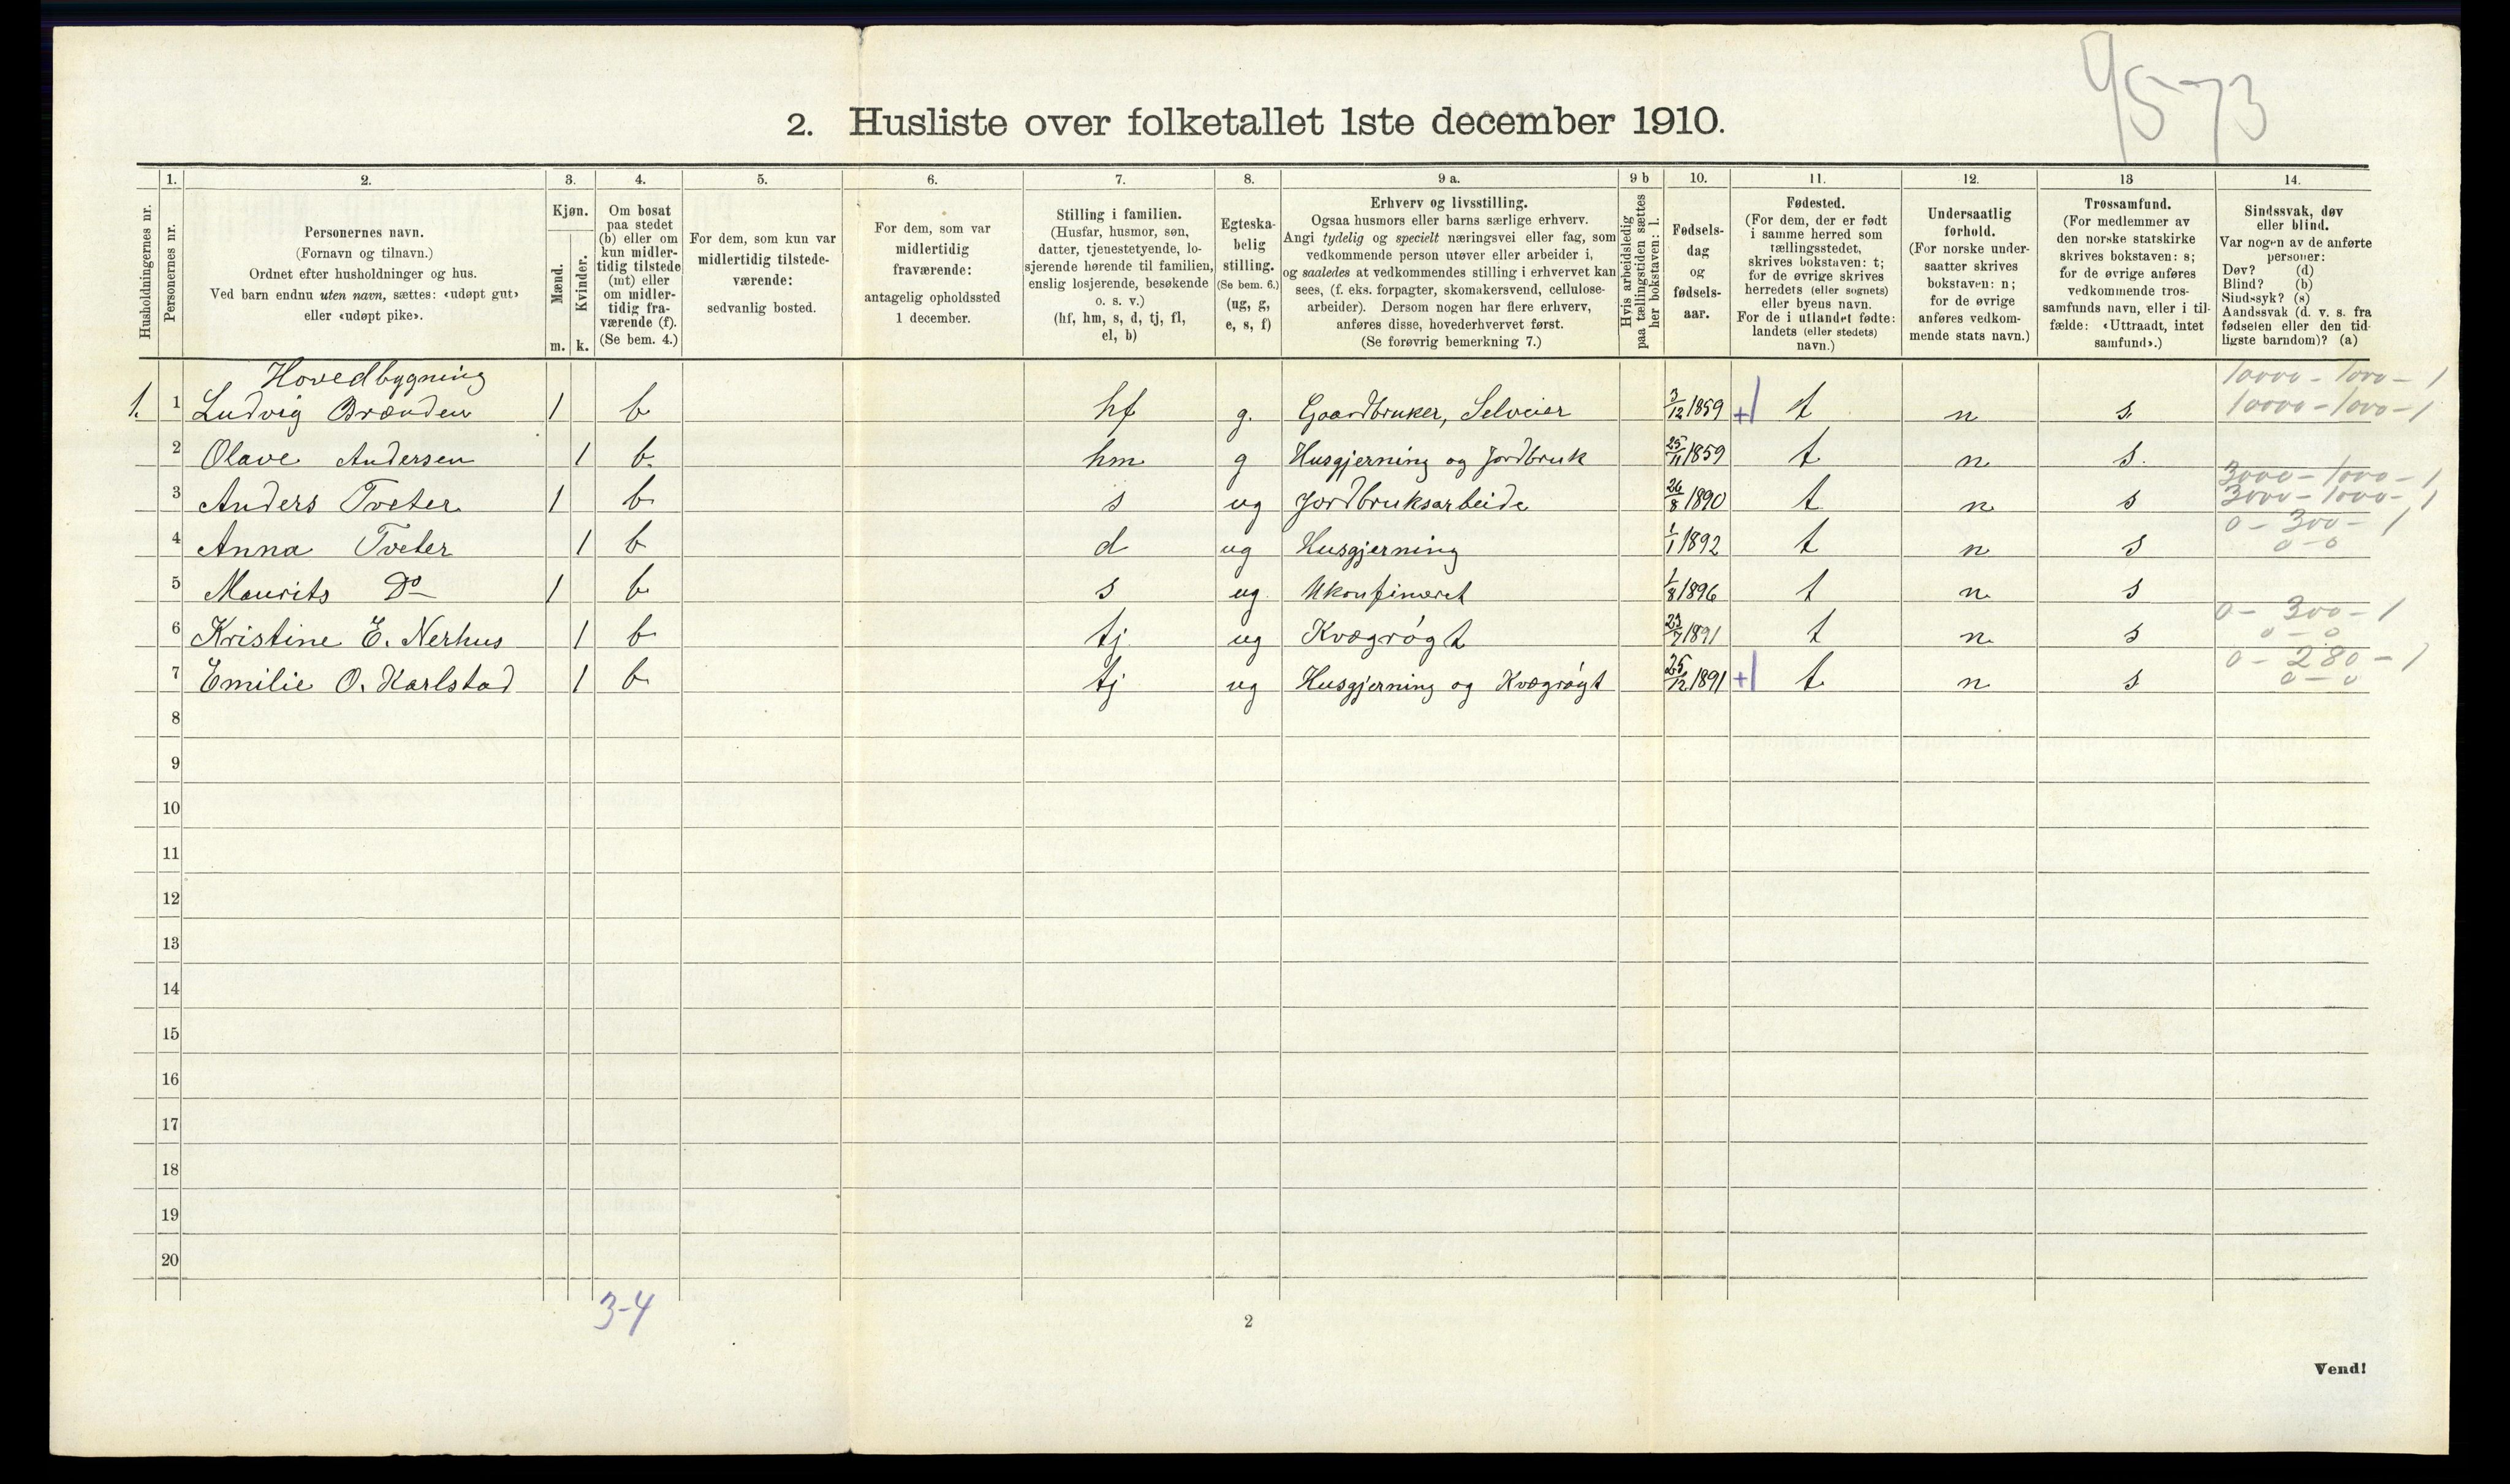 9573
2. Husliste over folketallet 1ste december 1910.
Husholdningernes nr.
1.
Personernes nr.
2.
Personernes navn.
(Fornavn og tilnavn.)
Ordnet efter husholdninger og hus.
Ved barn endnu uten navn, sættes: «udøpt gut»
eller «udøpt pike».
3.
Kjøn.
Mænd.
Kvinder.
m. k.
4.
Om bosat
paa stedet
(b) eller om
kun midler-
tidig tilstede
(mt) eller
om midler-
tidig fra-
værende (f).
(Se bem. 4.)
5.
For dem, som kun var
midlertidig tilstede-
værende:
sedvanlig bosted.
6.
For dem, som var
midlertidig
fraværende:
antagelig opholdssted
1 december.
7.
Stilling i familien.
(Husfar, husmor, søn,
datter, tjenestetyende, lo-
sjerende hørende til familien,
enslig losjerende, besøkende
o. s. v.)
(hf, hm, s, d, tj, fl,
el, b)
8.
Egteska-
belig
stilling.
(Se bem. 6.)
(ug, g,
e, s, f)
9 a.
Erhverv og livsstilling.
Ogsaa husmors eller barns særlige erhverv.
Angi tydelig og specielt næringsvei eller fag, som
vedkommende person utøver eller arbeider i,
og saaledes at vedkommendes stilling i erhvervet kan
sees, (f. eks. forpagter, skomakersvend, cellulose-
arbeider). Dersom nogen har flere erhverv,
anføres disse, hovederhvervet først.
(Se forøvrig bemerkning 7.)
9 b
Hvis arbeidsledig
paa tællingstiden sættes
her bokstaven: l.
10.
Fødsels-
dag
og
fødsels-
aar.
11.
Fødested.
(For dem, der er født
i samme herred som
tællingsstedet,
skrives bokstaven: t;
for de øvrige skrives
herredets (eller sognets)
eller byens navn.
For de i utlandet fødte:
landets (eller stedets)
navn.)
12.
Undersaatlig
forhold.
(For norske under-
saatter skrives
bokstaven: n;
for de øvrige
anføres vedkom-
mende stats navn.)
13
Trossamfund.
(For medlemmer av
den norske statskirke
skrives bokstaven: s;
for de øvrige anføres
vedkommende tros-
samfunds navn, eller i til-
fælde: «Uttraadt, intet
samfund».)
14.
Sindssvak, døv
eller blind.
Var nogen av de anførte
personer:
Døv? (d)
Blind? (b)
Sindssyk? (s)
Aandssvak (d. v. s. fra
fødselen eller den tid-
ligste barndom)? (a)
Hovedbygning 10000 - 1000 - 1
1. 1 Ludvig Brænden 1 b hf g. Gaardbruker, Selveier 3/12 1859 +| t n s. 10000 - 1000 - 1
2 Olave Andersen 1 b. hm g Husgjerning og Jordbruk 25/11 1859 t n s.
3000 - 1000 - 1
3 Anders Tveter 1 b s ug Jordbruksarbeide 26/8 1890 t n s 3000 - 1000 - 1
0 - 300 - 1
4 Anna Tveter 1 b d ug Husgjerning 1/1 1892 t n s 0 - 0
5 Maurits Do 1 b s ug. Ukonfimeret 1/8 1896 t n s
0 - 300 - 1
6 Kristine E. Nerhus 1 b tj ug Kvægrøgt 23/7 1891 t n s 0 - 0
0 - 280 - 1
7 Emilie O. Karlstad 1 b tj ug Husgjerning og Kvægrøgt 25/12 1891 +| t n s 0 - 0
8
9
10
11
12
13
14
15
16
17
18
19
20
3-4
2
Vend!